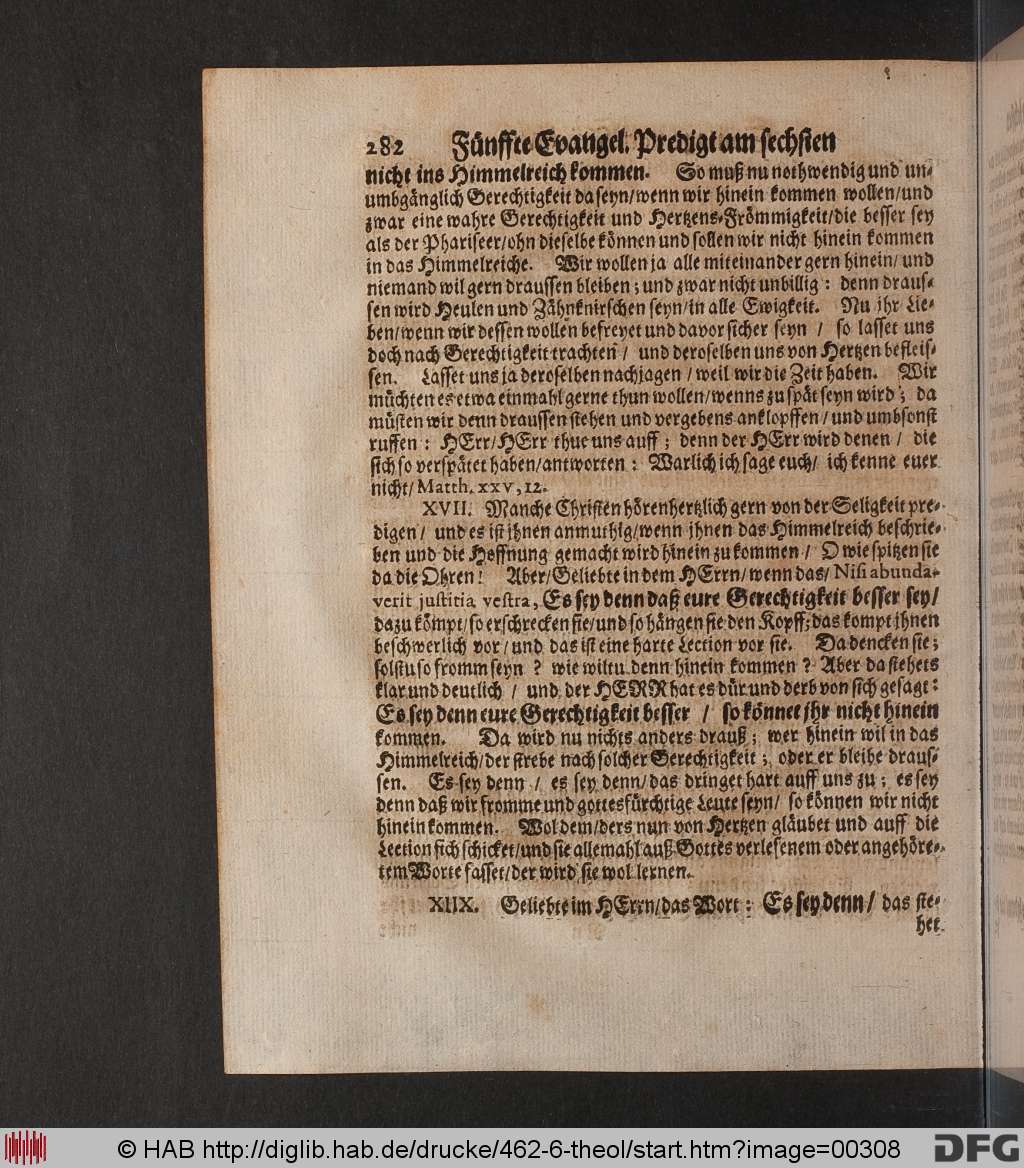 282 Fünffte Evangel. Predigt am sechsten
nicht ins Himmelreich kommen. So muß nu nothwendig und un-
umbgänglich Gerechtigkeit da seyn/wenn wir hinein kommen wollen/und
zwar eine wahre Gerechtigkeit und Hertzens-Frömmigkeit/die besser sey
als der Phariseer/ohn dieselbe können und sollen wir nicht hinein kommen
in das Himmelreiche. Wir wollen ja alle miteinander gern hinein/ und
niemand wil gern draussen bleiben; und zwar nicht unbillig: denn draus-
sen wird Heulen und Zähnknirschen seyn/in alle Ewigkeit. Nu jhr Lie-
ben/wenn wir dessen wollen befreyet und davor sicher seyn / so lasset uns
doch nach Gerechtigkeit trachten / und deroselben uns von Hertzen befleis-
sen. Lasset uns ja deroselben nachjagen / weil wir die Zeit haben. Wir
müchten es etwa einmahl gerne thun wollen/wenns zu spät seyn wird; da
müsten wir denn draussen stehen und vergebens anklopffen/und umbsonst
ruffen: HErr/HErr thue uns auff; denn der HErr wird denen / die
sich so verspätet haben/antworten: Warlich ich sage euch/ ich kenne euer
nicht/ Matth. xxv, 12.
XVII. Manche Christen hören hertzlich gern von der Seligkeit pre-
digen / und es ist jhnen anmuthig/wenn jhnen das Himmelreich beschrie-
ben und die Hoffnung gemacht wird hinein zu kommen / O wie spitzen sie
da die Ohren! Aber/Geliebte in dem HErrn/wenn das/ Nisi abunda-
verit justitia vestra, Es sey denn daß eure Gerechtigkeit besser sey/
dazu kömpt/so erschrecken sie/und so hängen sie den Kopff; das kompt jhnen
beschwerlich vor/und das ist eine harte Lection vor sie. Da dencken sie;
solstu so fromm seyn ? wie wiltu denn hinein kommen ? Aber da stehets
klar und deutlich / und der HERR hat es dür und derb von sich gesagt:
Es sey denn eure Gerechtigkeit besser / so könnet jhr nicht hinein
kommen. Da wird nu nichts anders drauß; wer hinein wil in das
Himmelreich/der strebe nach solcher Gerechtigkeit; oder er bleibe draus-
sen. Es sey denn / es sey denn/das dringet hart auff uns zu; es sey
denn daß wir fromme und gottesfürchtige Leute seyn/ so können wir nicht
hinein kommen. Wol dem/ders nun von Hertzen gläubet und auff die
Lection sich schicket/und sie allemahl auß Gottes verlesenem oder angehöre-
tem Worte fasset/der wird sie wol lernen.
XIIX. Geliebte im HErrn/das Wort: Es sey denn/ das ste-
het
© HAB http://diglib.hab.de/drucke/462-6-theol/start.htm?image=00308
DFG